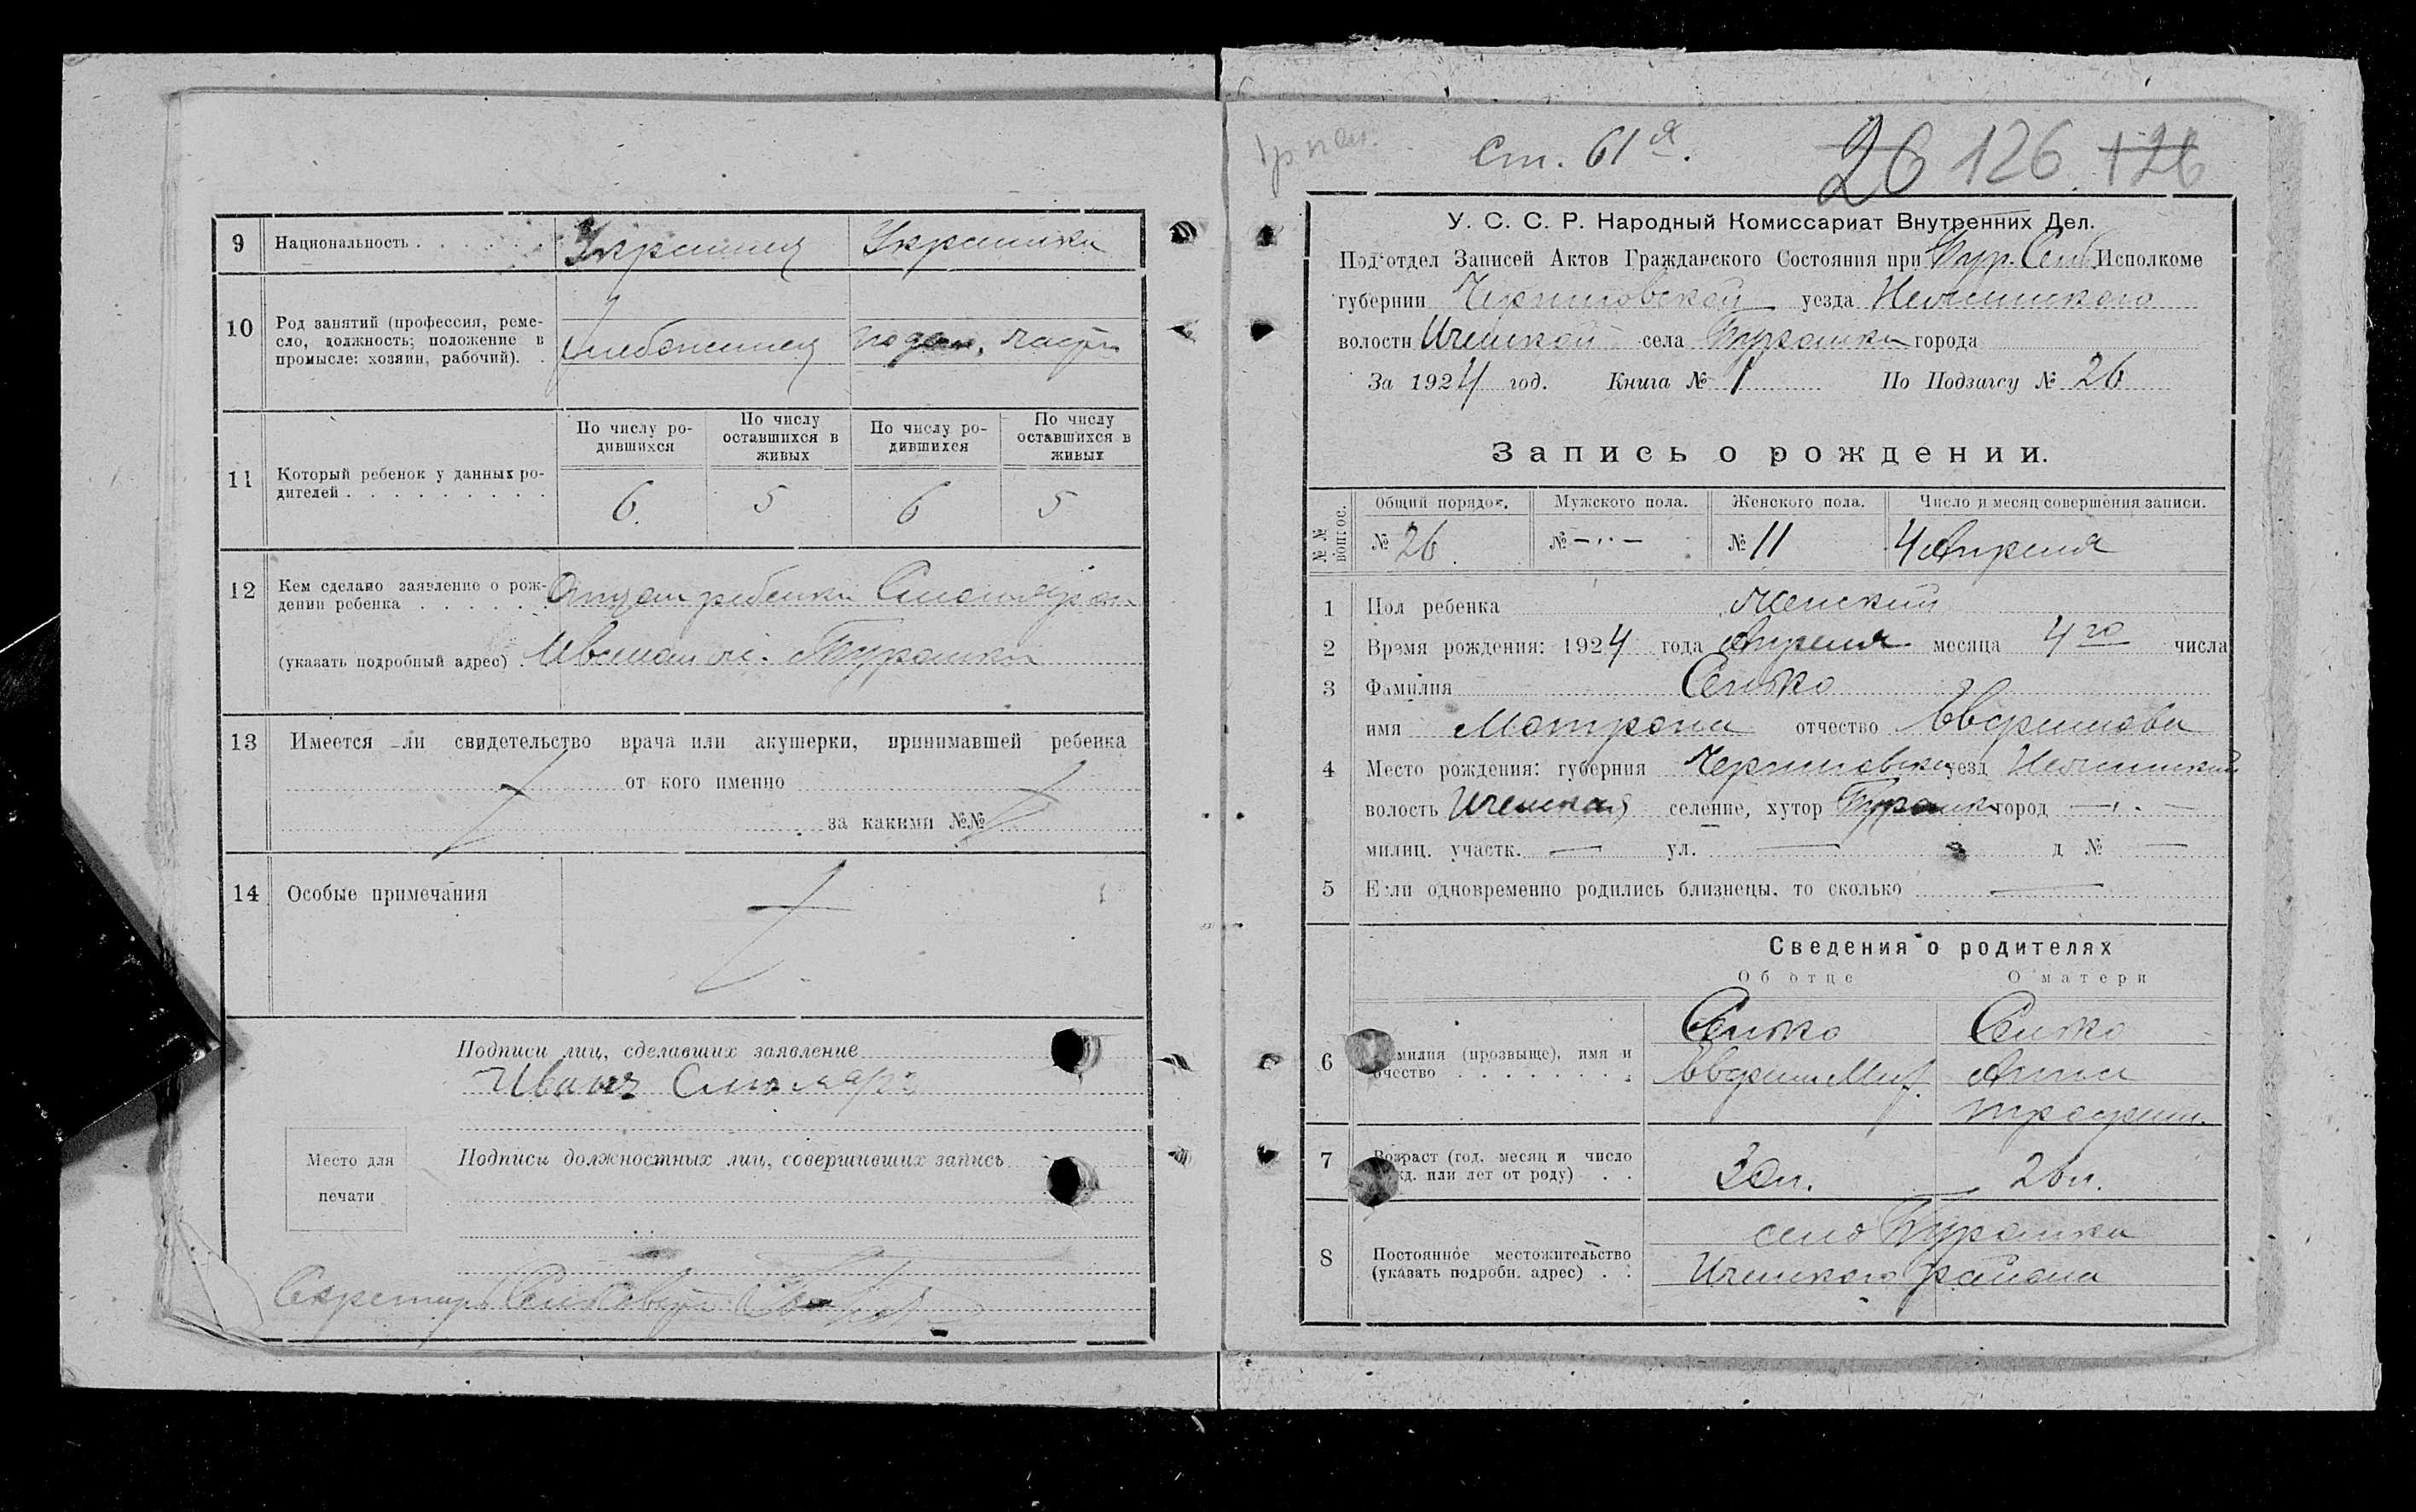 9 Национальность . Украинец Украинка
10 Род занятий (профессия, реме-
сло, должность; положение в
промысле: хозяин, рабочий). . Хлебопашец
По числу ро-
дившихся
По числу
оставшихся в
живых
По числу ро-
дившихся
По числу
оставшихся в
живых
11 Который ребенок у данных ро-
дителей . . . . . . . . .
6. 5 6 5
12 Кем сделано заявление о рож-
дении ребенка . . . . . . Отцом ребенка
(указать подробный адрес) . Иваном
13 Имеется ли свидетельство врача или акушерки, принимавшей ребенка
от кого именно
за какими №№
14 Особые примечания
Подписи лиц, сделавших заявление
Иванъ
Подписи должностных лиц, совершивших запись
Место для
печати
Секретарь
ст. 61я.
26 126 126
У. С. С. Р. Народный Комиссариат Внутренних Дел.
Подотдел Записей Актов Гражданского Состояния при Исполкоме
губернии Черниговской уезда Нежинского
волости Иченской села города
За 1924 год. Книга № 1 По Подзагсу № 26
Запись о рождении.
№ №
вопрос.
Общий порядок. Мужского пола. Женского пола. Число и месяц совершения записи.
№ 26 № -"- № 11 4 Апреля
1 Пол ребенка Женский
2 Время рождения: 1924 года Апреля месяца 4го числа
3 Фамилия
имя Матрона отчество Евфимова
4 Место рождения: губерния Черниговская уезд Нежинский
волость Иченская селение, хутор город
милиц. участк. — ул. — д № —
5 Если одновременно родились близнецы, то сколько —
Сведения о родителях
Об отце О матери
6 Фамилия (прозвыще), имя и
отчество . . . . . . . .
Евфим Анна
7 Возраст (год, месяц и число
рожд. или лет от роду) . . 26 л.
8 Постоянное местожительство
(указать подробн. адрес) . .
село
Иченского района